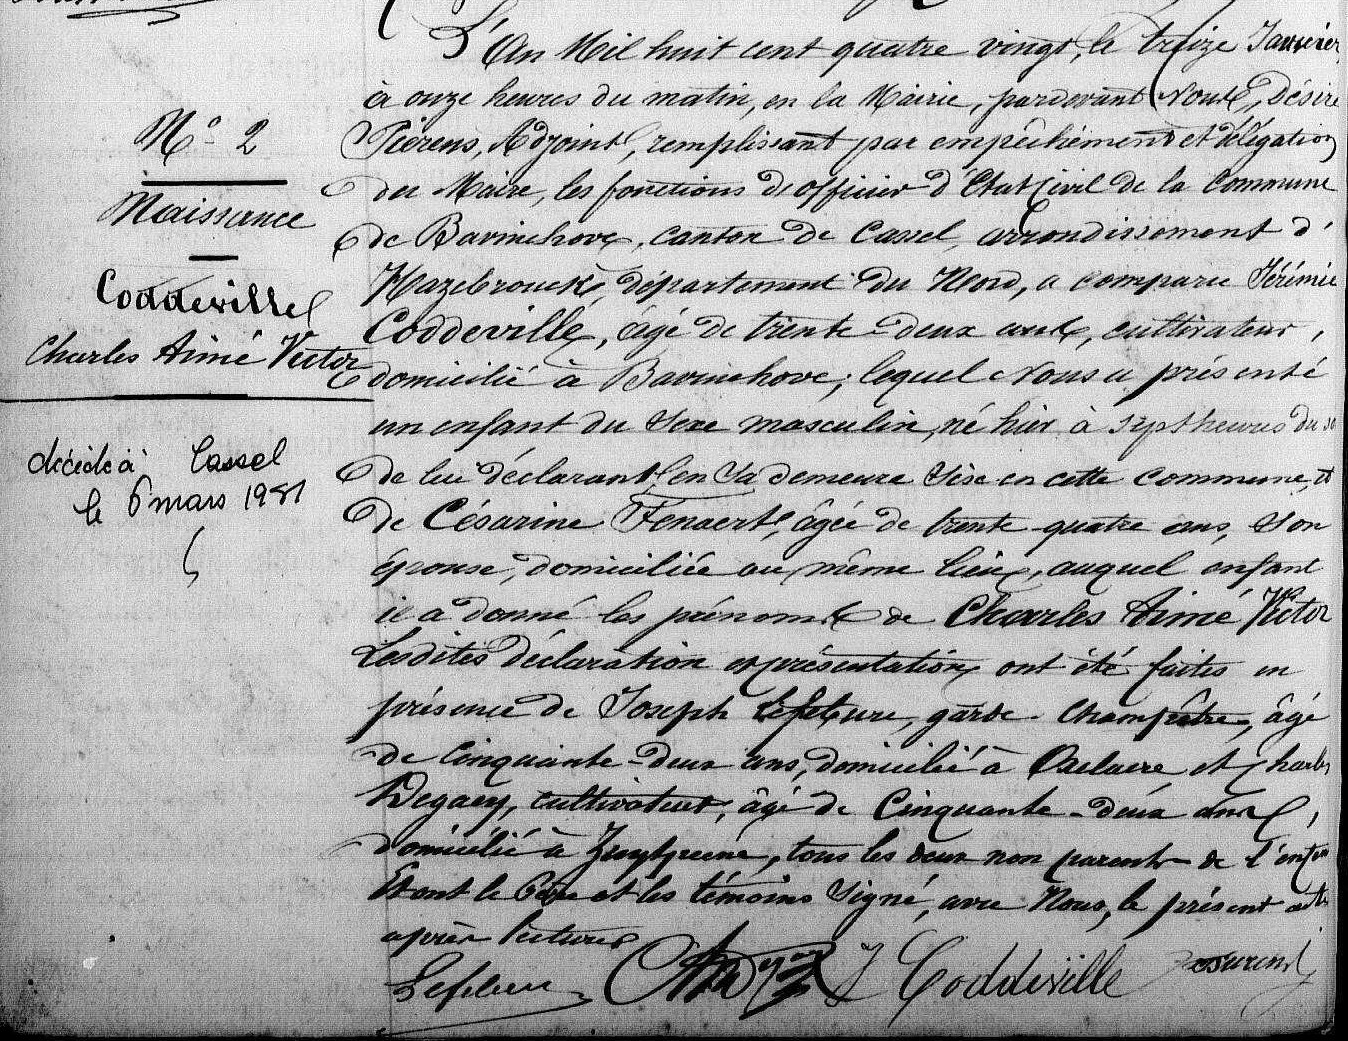 N° 2
Naissance
Coddeville
Charles Aimé Victor
décédé à Cassel
le 6 mars 1951
L'An Mil huit cent quatre vingt, le treize Janvier,
à onze heures du matin, en la Mairie, pardevant Nous, Désiré
Piérens, Adjoint, remplissant par empêchement et délégation
du Maire, les fonctions d'officier d'Etat Civil de la Commune
de Bavinchove, canton de Cassel, arrondissement d'
Hazebrouck, département du Nord, a comparu Jérémie
Coddeville, âgé de trente-deux ans, cultivateur,
domicilié à Bavinchove; lequel Nous a présenté
un enfant du sexe masculin, né hier à sept heures du
de lui déclarant, en sa demeure sise en cette commune, et
de Césarine Fenaert, âgée de trente-quatre ans, son
épouse, domiciliée au même lieu, auquel enfant
il a donné les prénoms de Charles Aimé Victor
Lesdites déclaration et présentation ont été faites en
présence de Joseph Lefebvre, garde-champêtre, âgé
de cinquante-deux ans, domicilié à Oxelaere et Charles
Degaey, cultivateur, âgé de Cinquante-deux ans,
domicilié à Zuytpeene, tous les deux non parents de l'enfan
Et ont le Père et les témoins signé, avec Nous, le présent acte
après lecture
Lefebvre J Coddeville